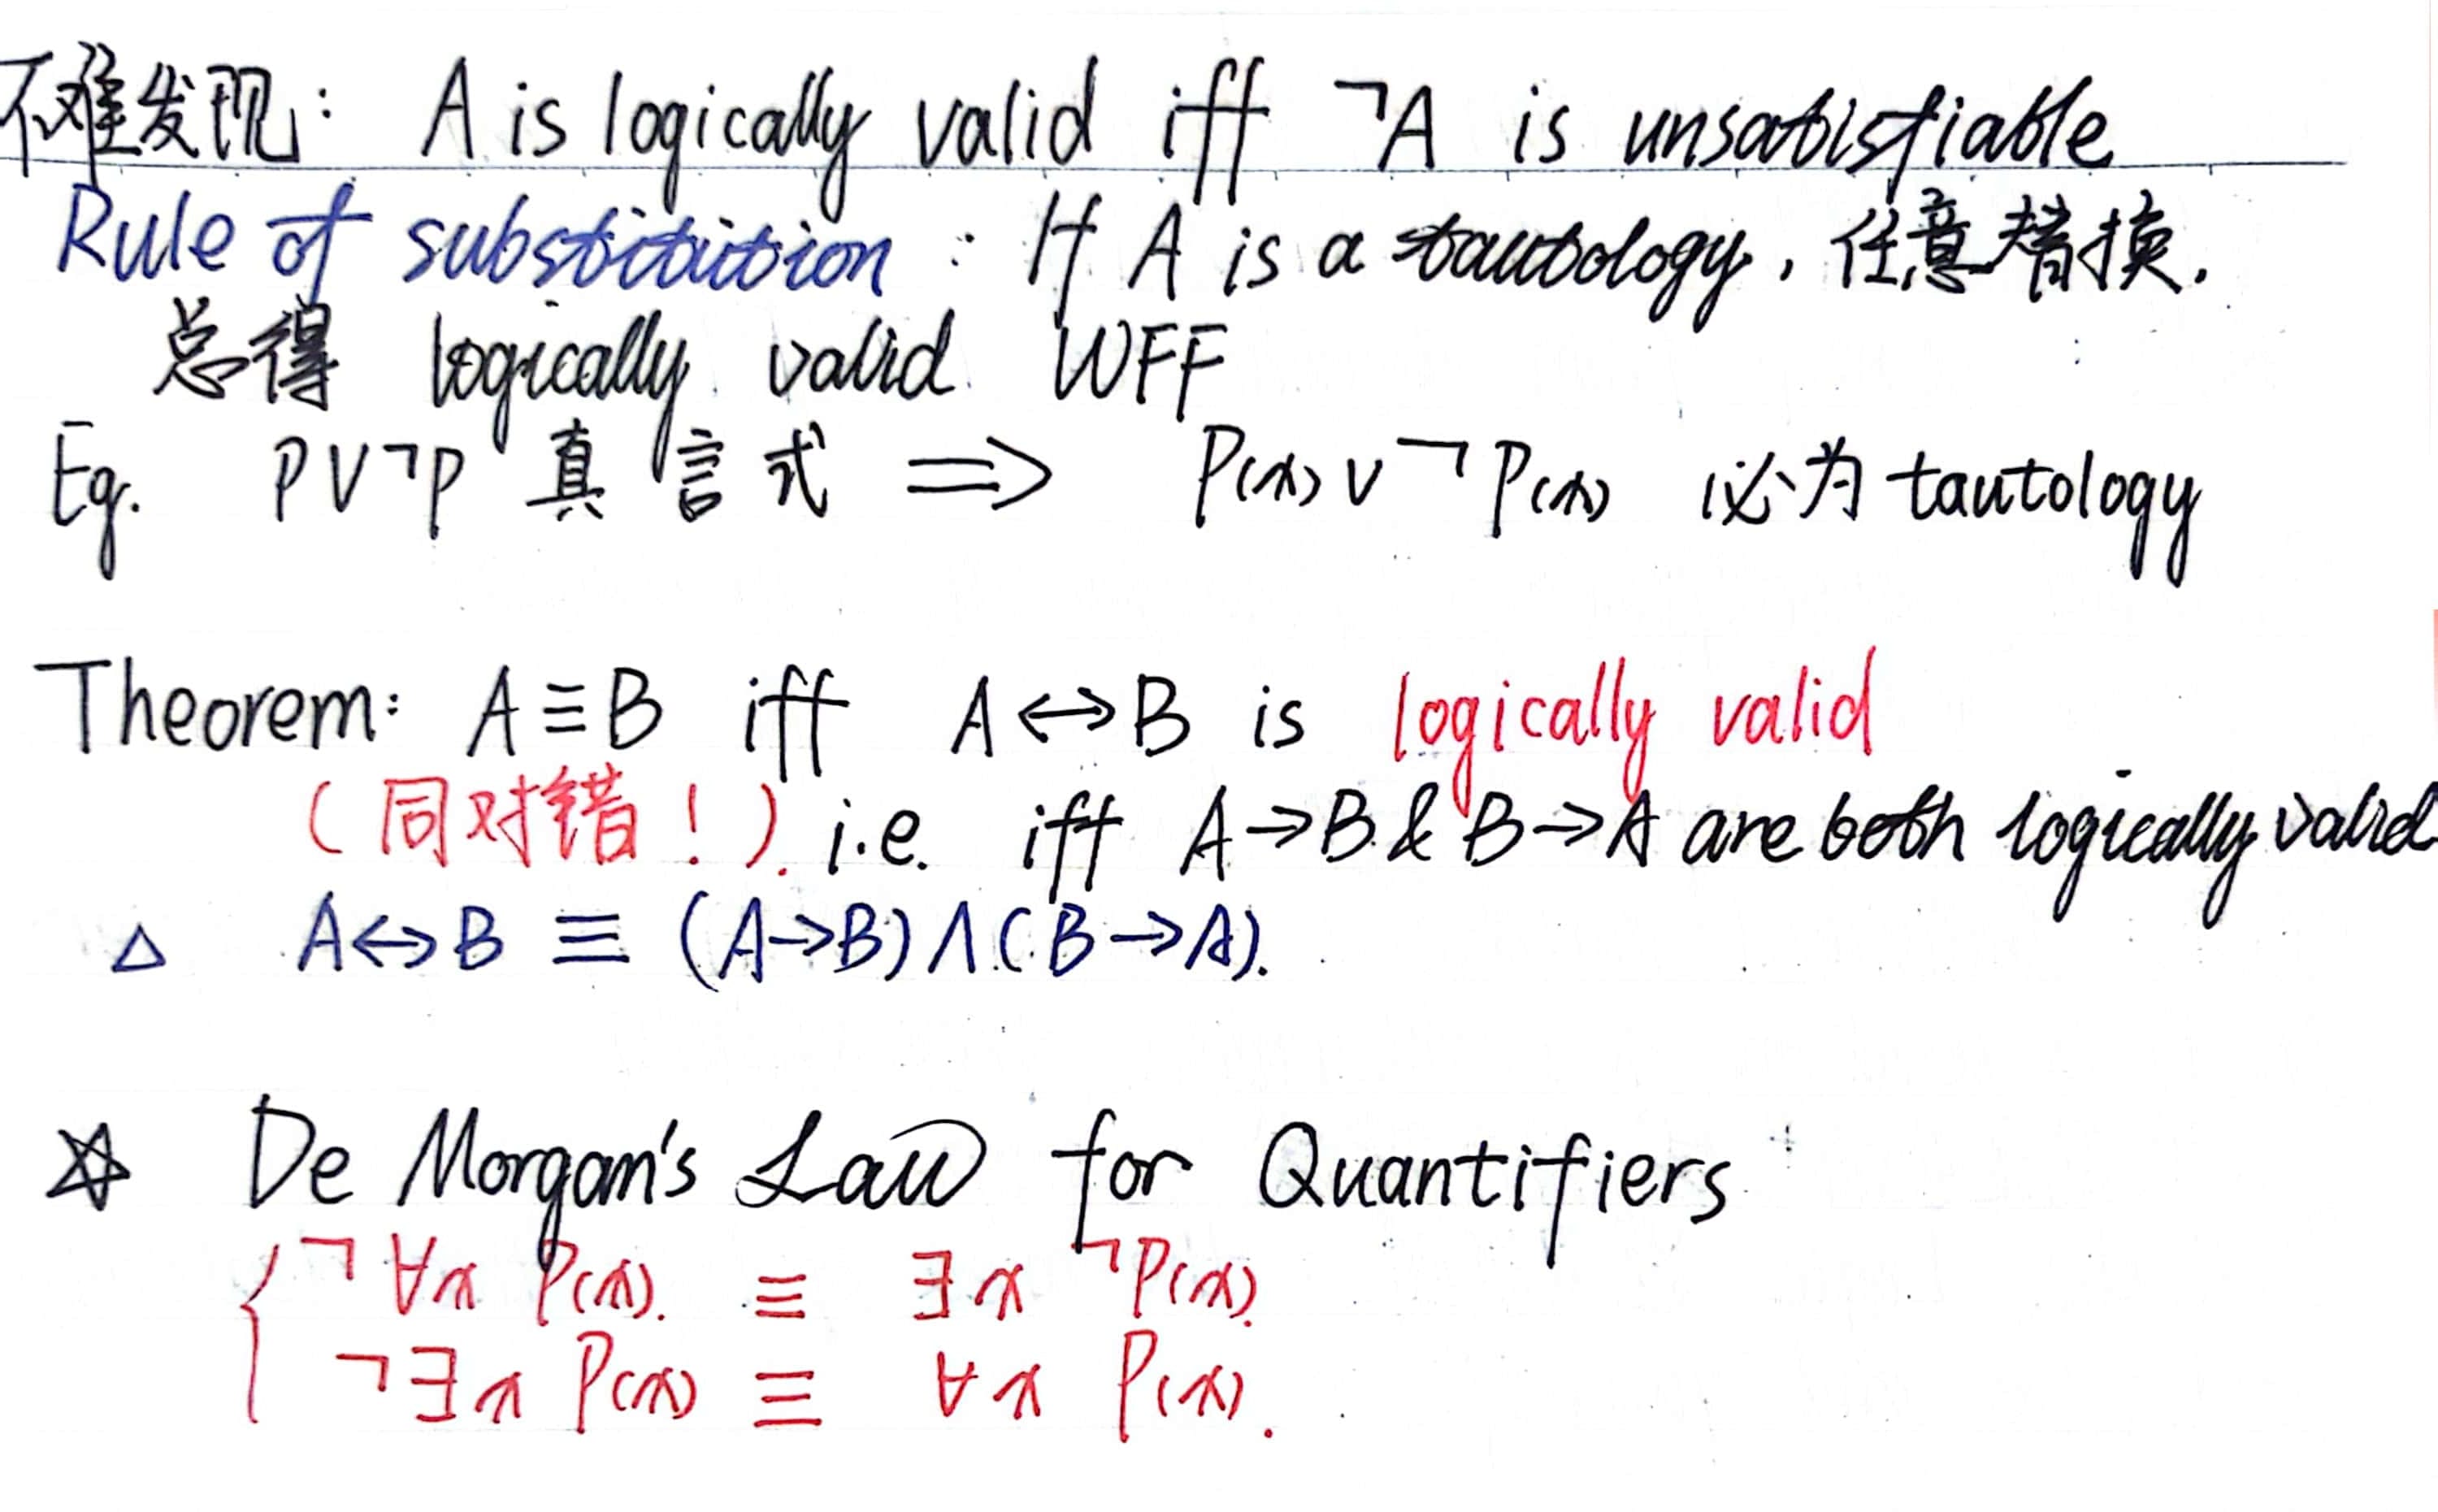 不难发现: A is logically valid iff ¬A is unsatisfiable
Rule of substitution : If A is a tautology, 任意替换.
总得 logically valid WFF
Eg. P∨¬P 真言式 ⟹ P(x)∨¬P(x) 必为 tautology
Theorem: A≡B iff A↔B is logically valid
(同对错!). i.e. iff A→B & B→A are both logically valid
△ A↔B ≡ (A→B)∧(B→A).
☆ De Morgan's Law for Quantifiers
{ ¬∀x P(x). ≡ ∃x ¬P(x).
¬∃x P(x) ≡ ∀x P(x).